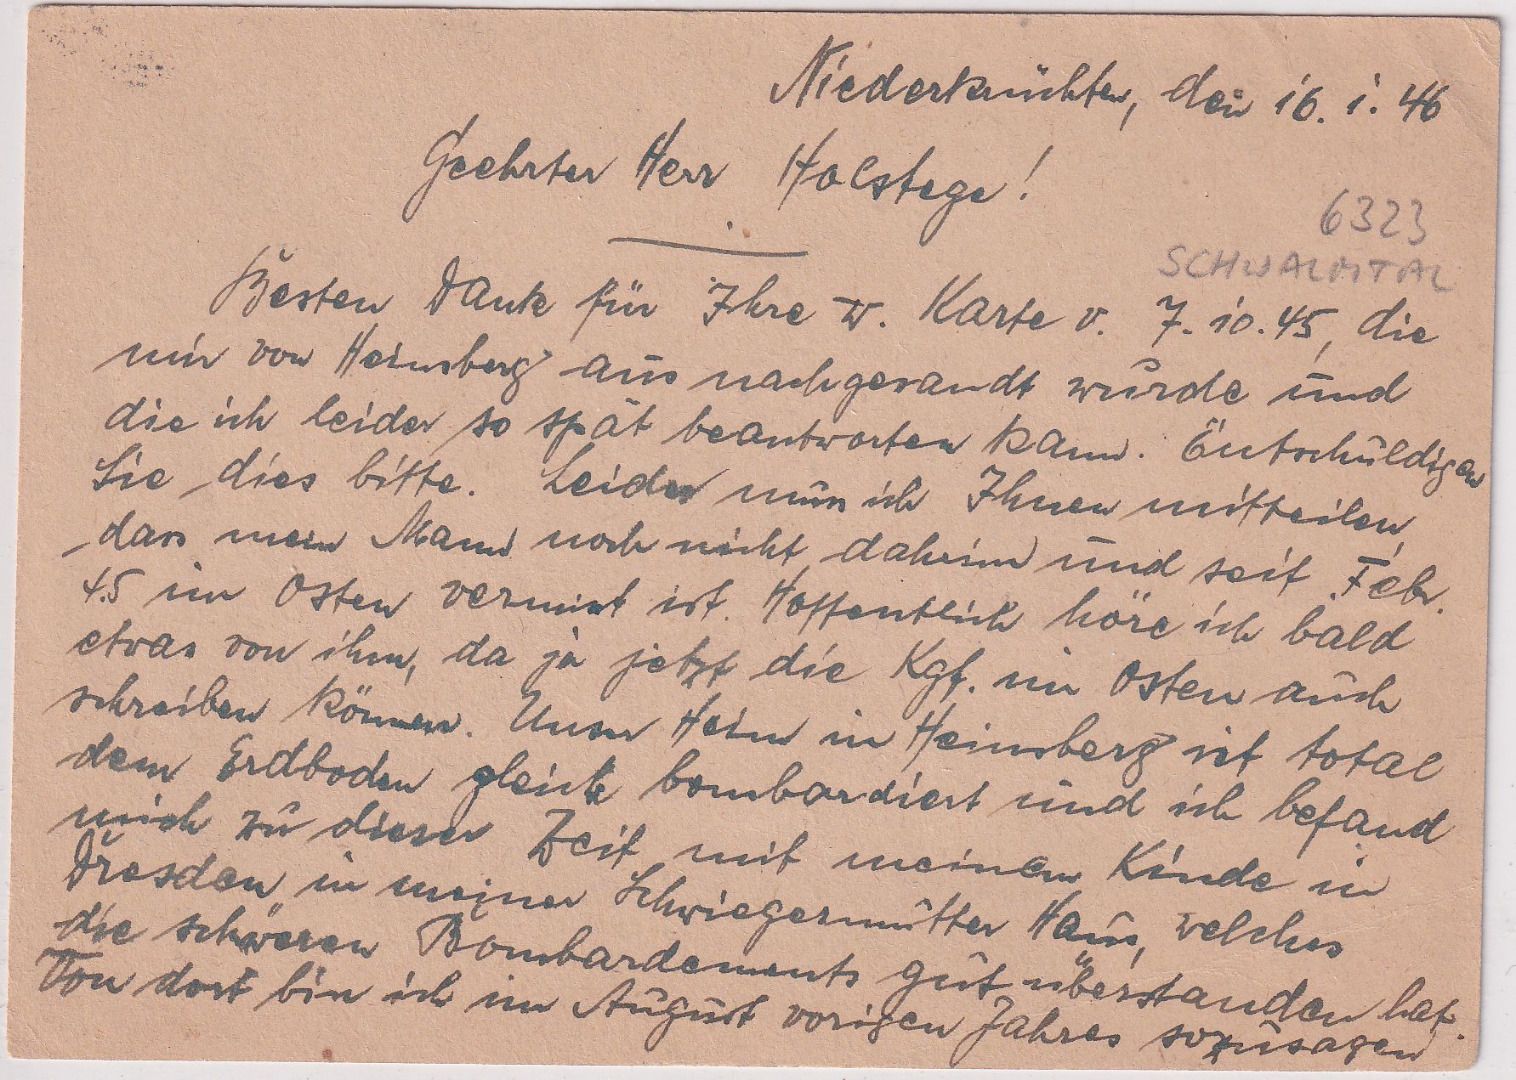 Niederkrüchten, den 16. 1. 46
Geehrter Herr Holstege!
6323
SCHWALMTAL
Besten Dank für Ihre w. Karte v. 7.10.45, die
mir von Heinsberg aus nachgesandt wurde und
die ich leider so spät beantworten kann. Entschuldigen
Sie dies bitte. Leider muss ich Ihnen mitteilen,
dass mein Mann noch nicht daheim und seit Febr.
45 im Osten vermisst ist. Hoffentlich höre ich bald
etwas von ihm, da ja jetzt die Kgf. im Osten auch
schreiben können. Unser Heim in Heinsberg ist total
dem Erdboden gleich bombardiert und ich befand
mich zu dieser Zeit mit meinem Kinde in
Dresden in meiner Schwiegermutter Haus, welches
die schweren Bombardements gut überstanden hat.
Von dort bin ich im August vorigen Jahres sozusagen